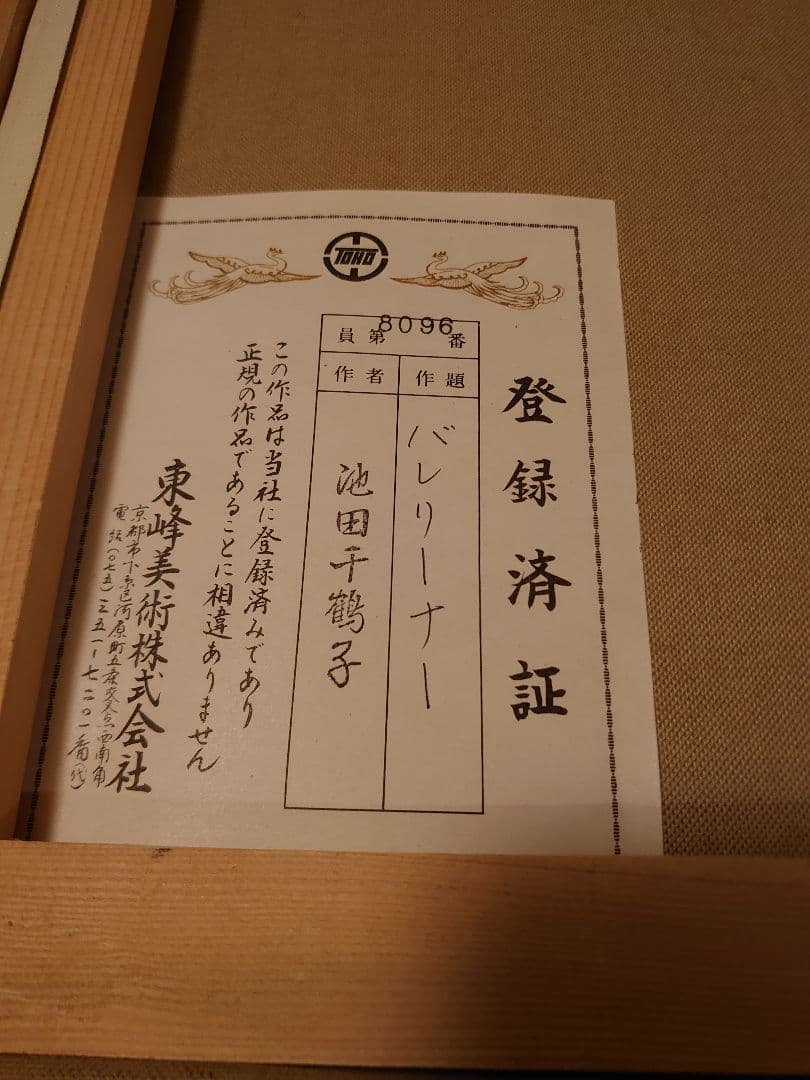 TOHO
登録済証
員第8096番
作題
バレリーナー
作者
池田千鶴子
この作品は当社に登録済みであり
正規の作品であることに相違ありません
東峰美術株式会社
京都市下京区河原町五条交叉点西南角
電話(〇七五)三五一-七二〇一番(代)